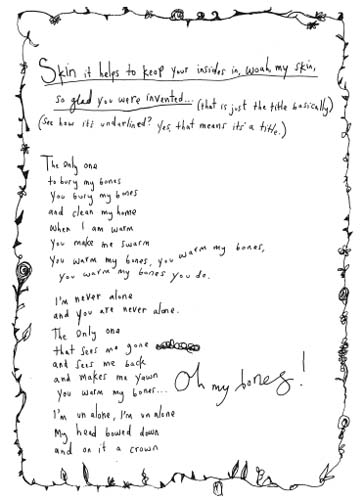 Skin it helps to keep your insides in, woah, my skin,
so glad you were invented... (that is just the title basically)
(see how it's underlined? Yes, that means it's a title.)
The only one
to bury my bones
You bury my bones
and clean my home
When I am warm
You make me swarm
You warm my bones, you warm my bones,
you warm my bones you do.
I'm never alone
and you are never alone.
The only one
that sees me gone
and sees me back
and makes me yawn
You warm my bones...
Oh my bones!
I'm un alone, I'm un alone
My head bowed down
and on it a crown